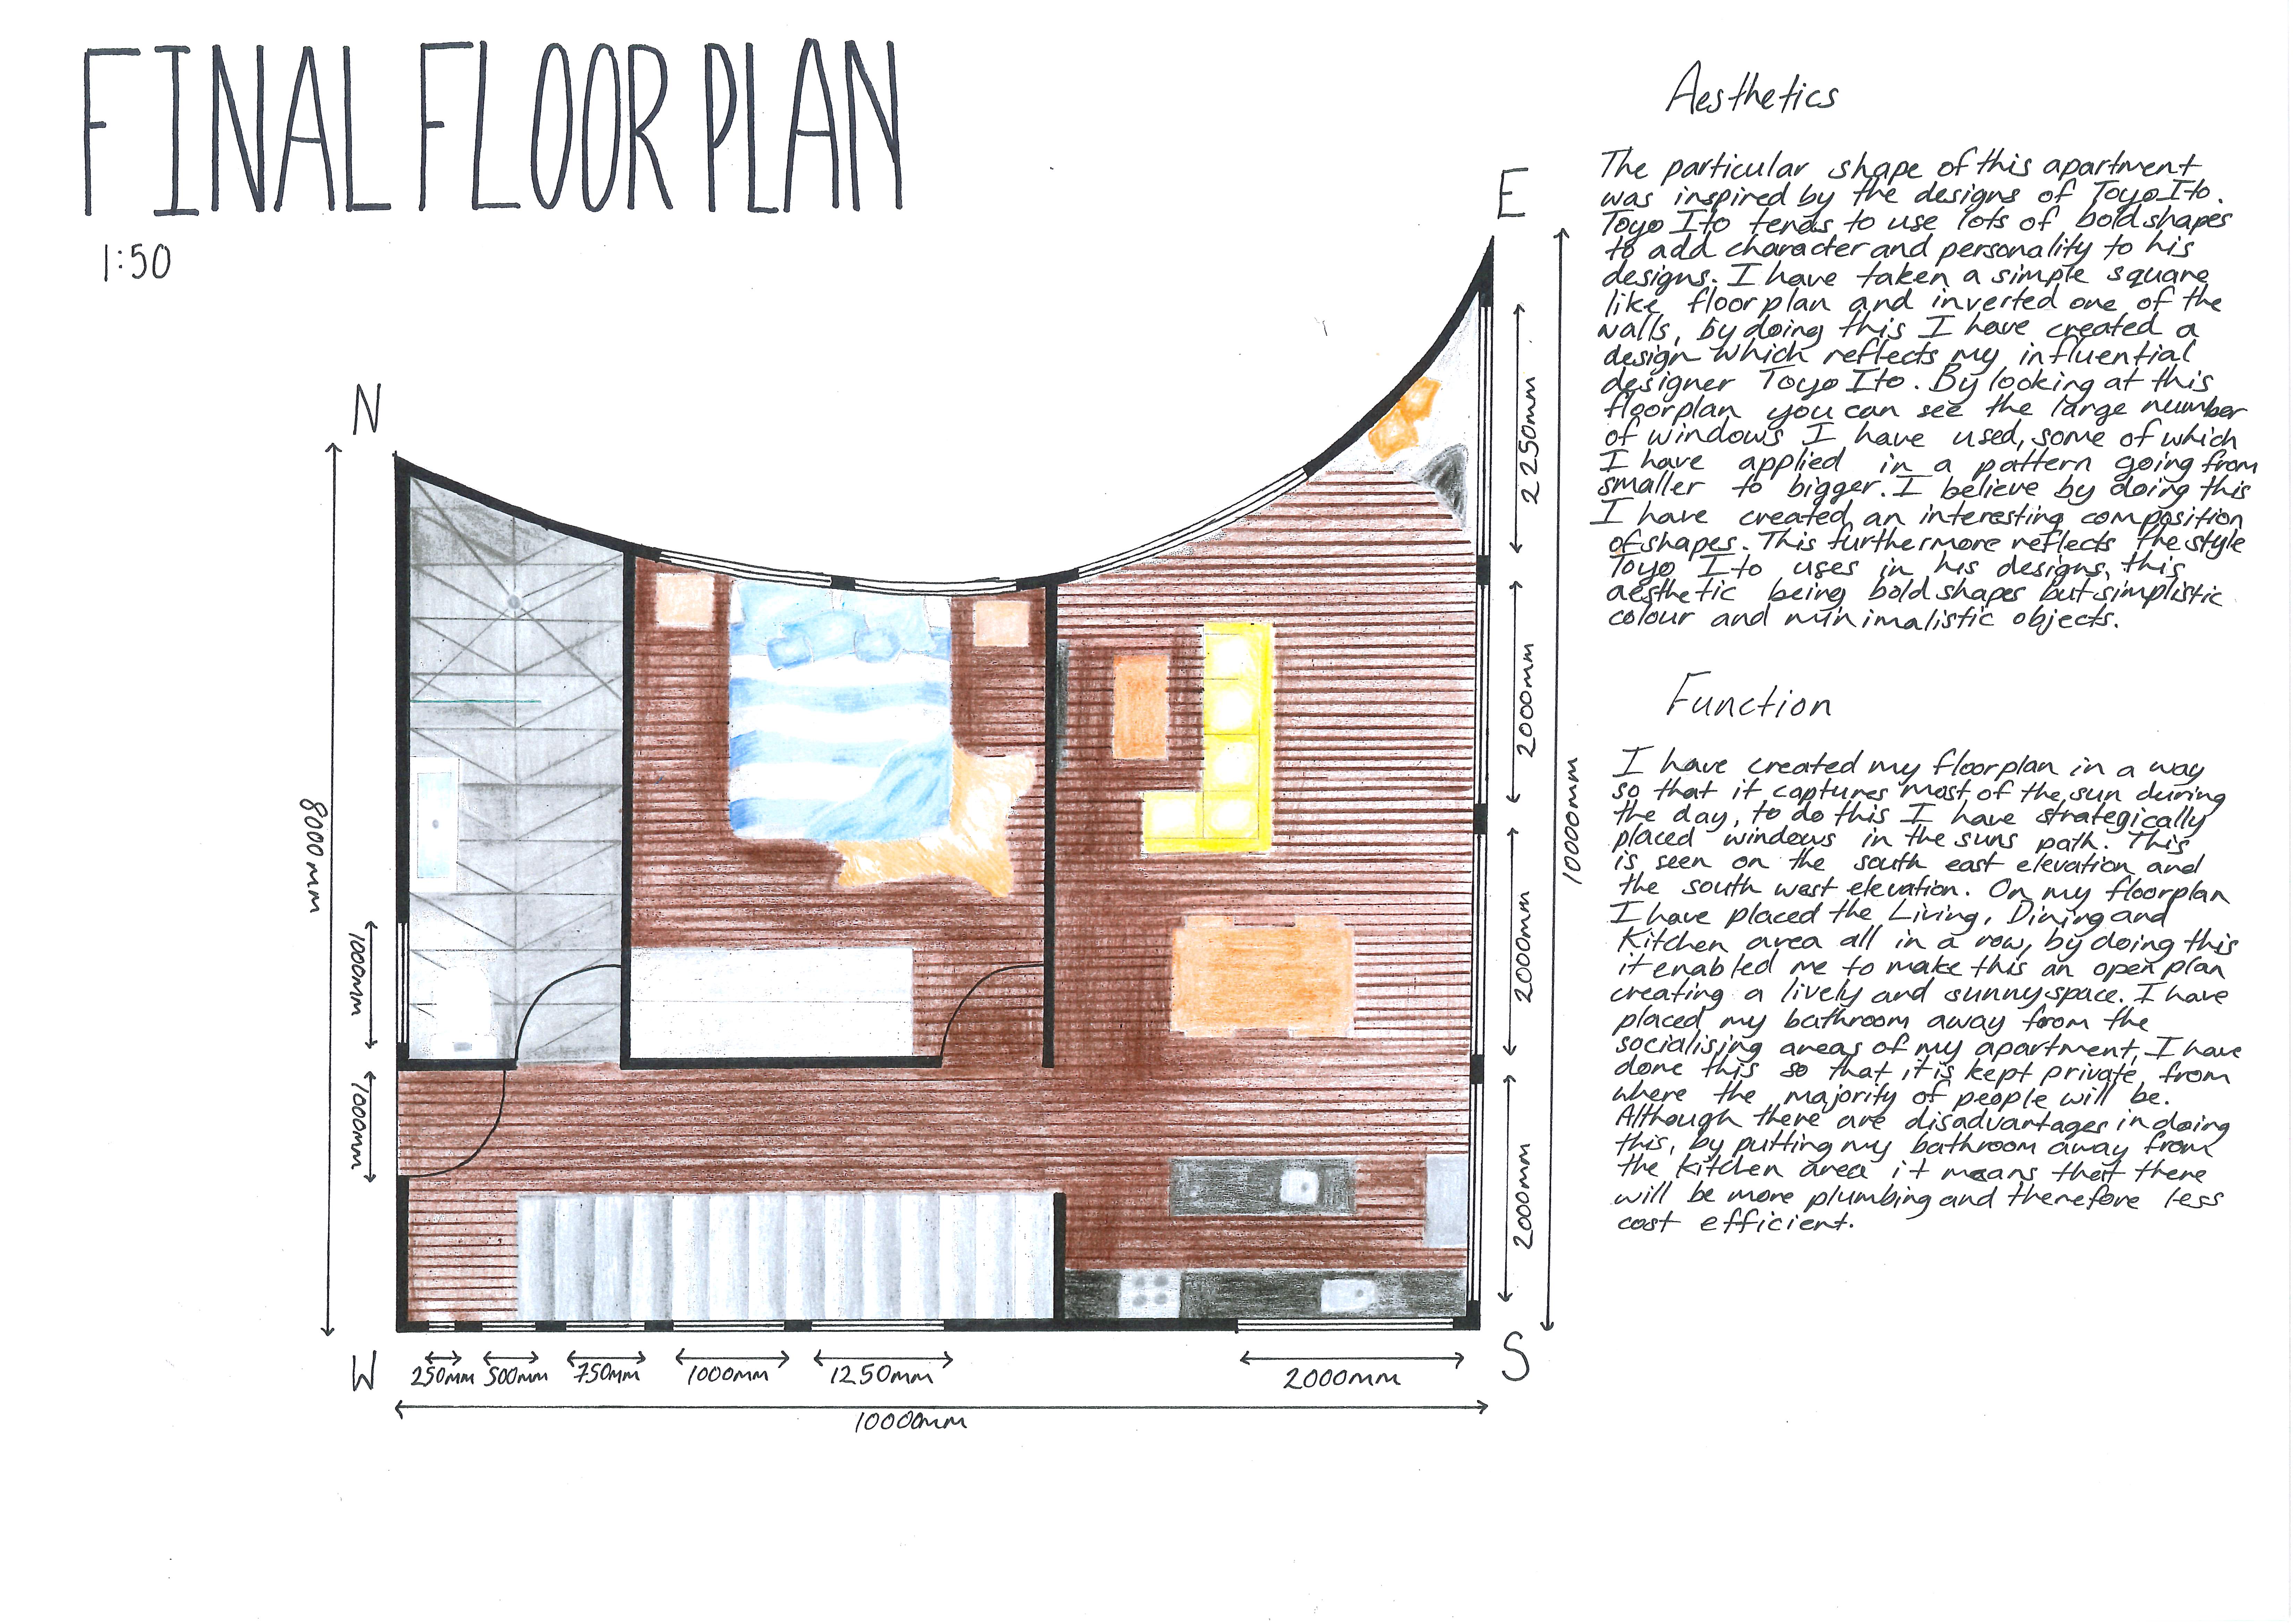 FINAL FLOOR PLAN
1:50
N
E
W
S
8000mm
1000mm
1000mm
2250mm
2000mm
2000mm
2000mm
10000mm
250mm 500mm 750mm 1000mm 1250mm 2000mm
10000mm
Aesthetics
The particular shape of this apartment
was inspired by the designs of Toyo Ito.
Toyo Ito tends to use lots of bold shapes
to add character and personality to his
designs. I have taken a simple square
like floorplan and inverted one of the
walls, by doing this I have created a
design which reflects my influential
designer Toyo Ito. By looking at this
floorplan you can see the large number
of windows I have used, some of which
I have applied in a pattern going from
smaller to bigger. I believe by doing this
I have created an interesting composition
of shapes. This furthermore reflects the style
Toyo Ito uses in his designs, this
aesthetic being bold shapes but simplistic
colour and minimalistic objects.
Function
I have created my floorplan in a way
so that it captures most of the sun during
the day, to do this I have strategically
placed windows in the suns path. This
is seen on the south east elevation and
the south west elevation. On my floorplan
I have placed the Living, Dining and
Kitchen area all in a row, by doing this
it enabled me to make this an open plan
creating a lively and sunny space. I have
placed my bathroom away from the
socialising areas of my apartment, I have
done this so that it is kept private from
where the majority of people will be.
Although there are disadvantages in doing
this, by putting my bathroom away from
the kitchen area it means that there
will be more plumbing and therefore less
cost efficient.